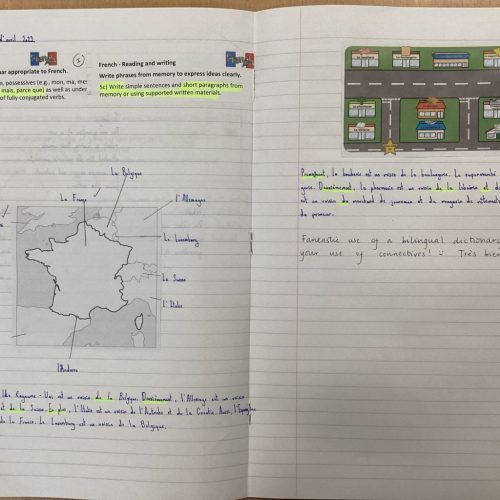 d'avril 2022
ar appropriate to French.
n, possessives (e.g., mon, ma, mes
mais, parce que) as well as under
of fully conjugated verbs.
French - Reading and writing
Write phrases from memory to express ideas clearly.
5c) Write simple sentences and short paragraphs from
memory or using supported written materials.
La Belgique
La France
l'Allemagne
Le Luxembourg
La Suisse
l'Italie
l'Andorre
Royaume-Uni est un voisin de la Belgique. Deuxièmement, l'Allemagne est un voisin
et de la Suisse. En plus, l'Italie est un voisin de l'Autriche et de la Croatie. Aussi, l'Espagne
de la France. Le Luxembourg est un voisin de la Belgique.
La pharmacie
La librairie
la boucherie est un voisin de la boulangerie. Le supermarché
gare. Deuxièmement, la pharmacie est un voisin de la librairie et de
est un voisin du marchand de journaux et du magasin de
du primeur.
Fantastic use of a bilingual dictionary
your use of connectives! Très bien